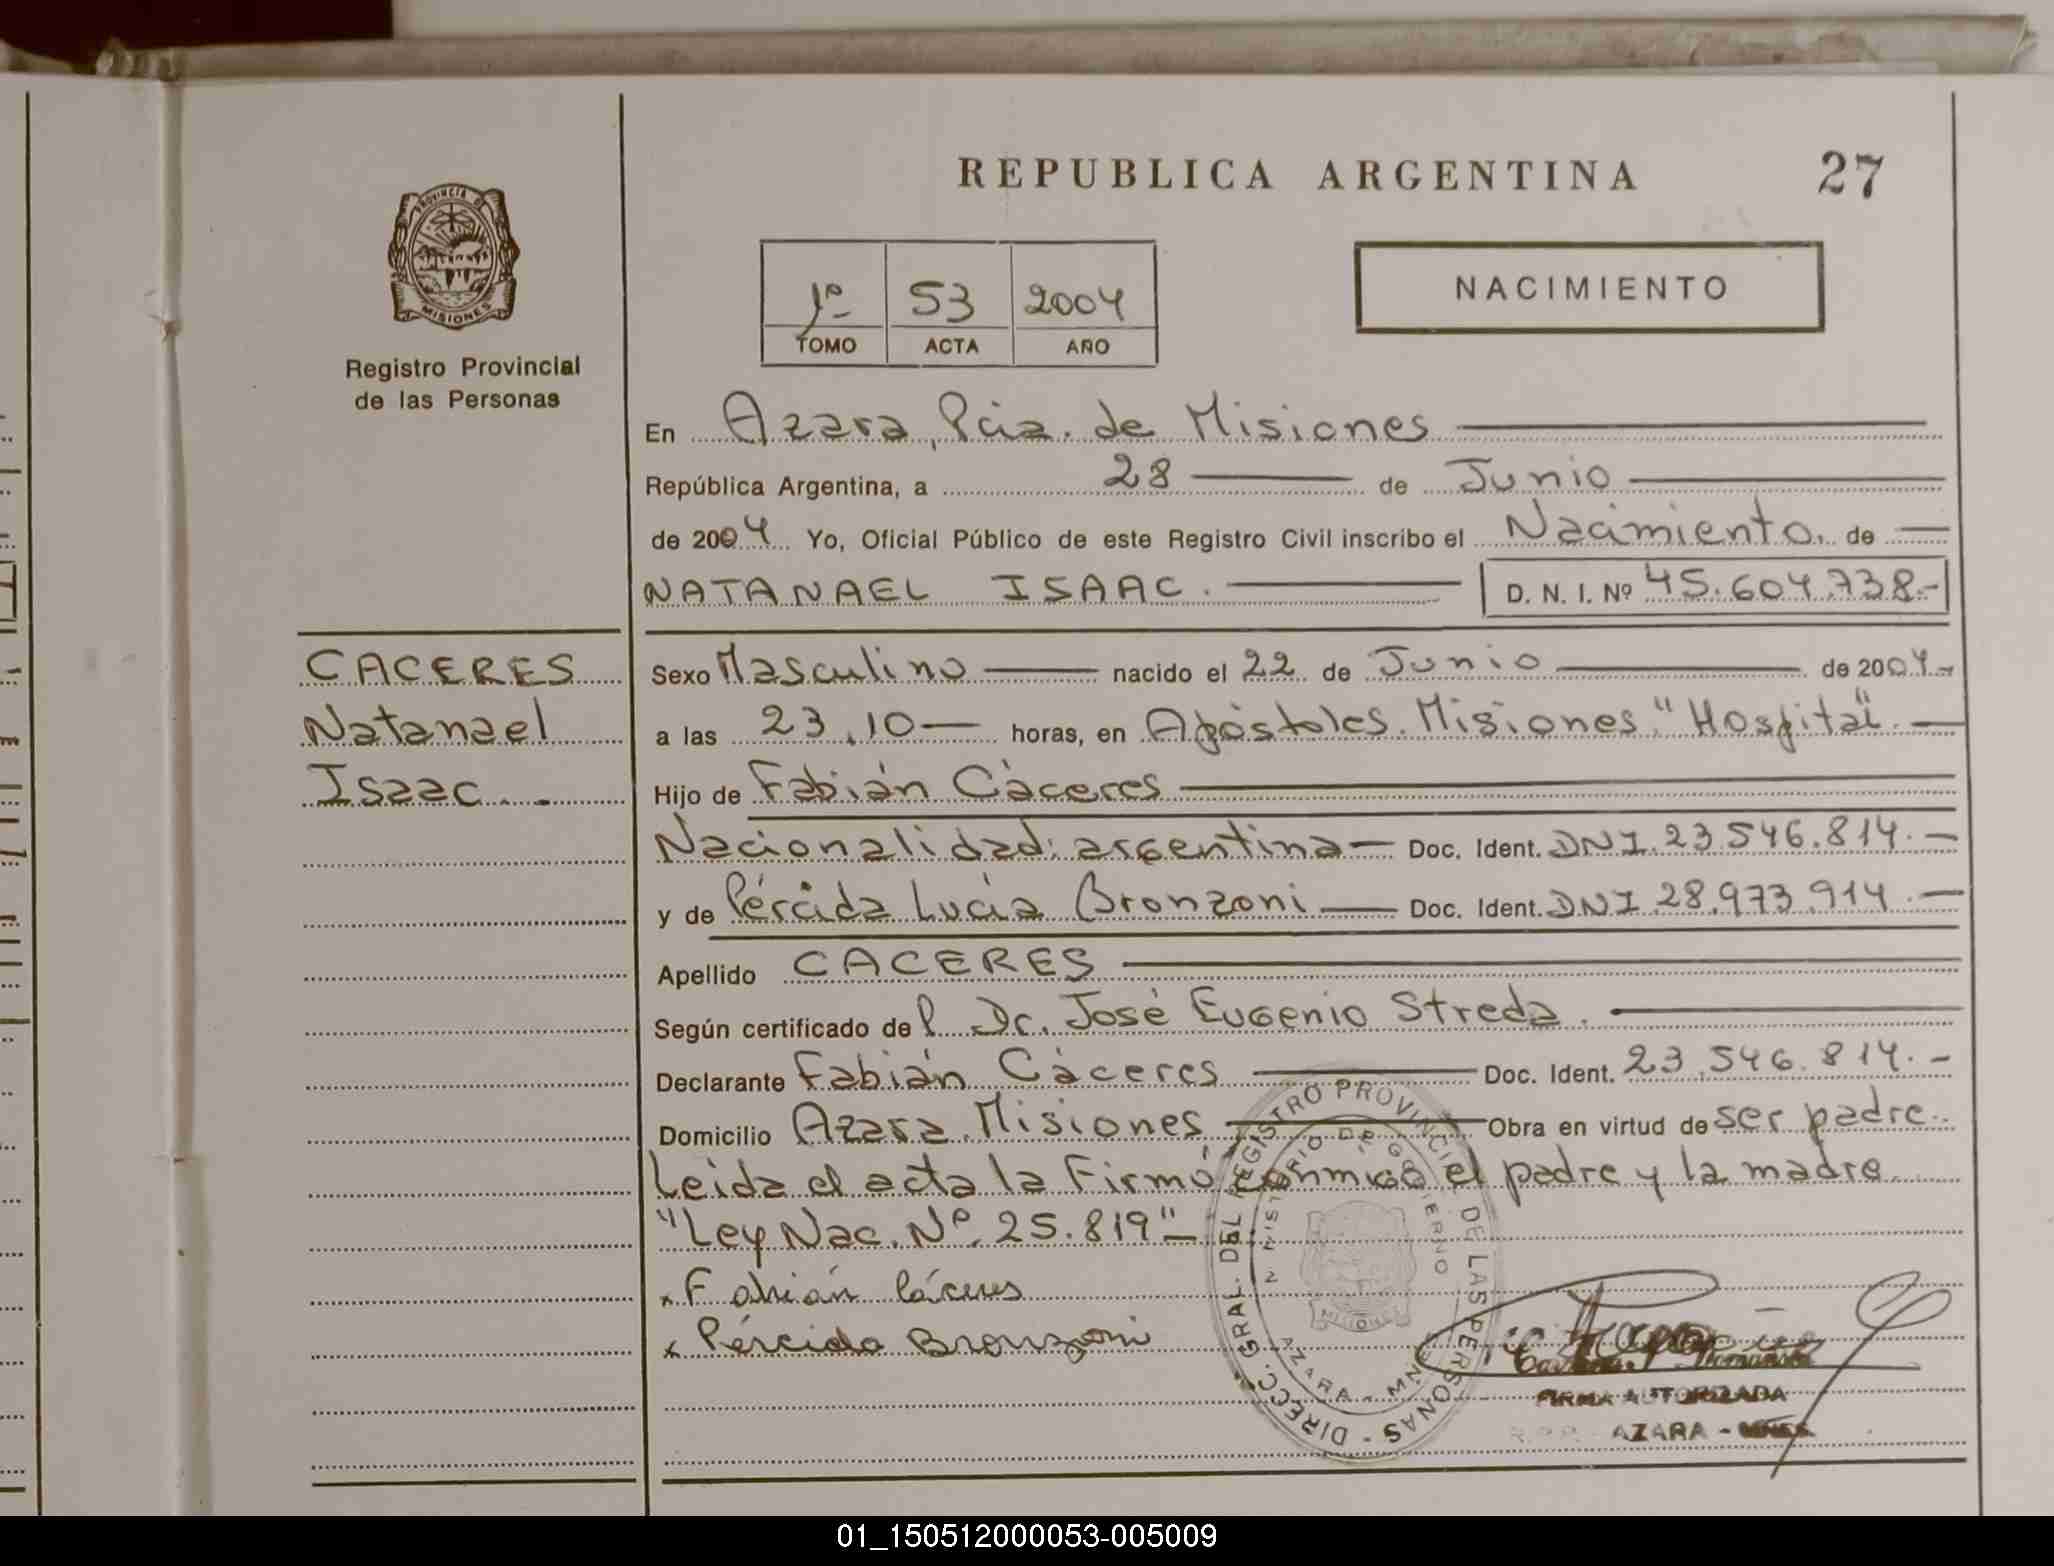 REPUBLICA ARGENTINA
27
PROVINCIA DE
MISIONES
Registro Provincial
de las Personas
1º 53 2004
TOMO ACTA AÑO
NACIMIENTO
En Azara, Pcia. de Misiones
República Argentina, a 28 de Junio
de 2004 Yo, Oficial Público de este Registro Civil inscribo el Nacimiento. de
NATANAEL ISAAC. D. N. I. Nº 45.604.738.-
CACERES
Natanael
Isaac..-
Sexo Masculino nacido el 22 de Junio de 2004.-
a las 23,10 horas, en Apóstoles. Misiones. "Hospital"
Hijo de Fabián Cáceres
Nacionalidad: argentina Doc. Ident. DNI. 23.546.814.-
y de Pércida Lucía Bronzoni Doc. Ident. DNI 28.973.914.-
Apellido CACERES
Según certificado del Dr. José Eugenio Streda.
Declarante Fabián Cáceres Doc. Ident. 23.546.814.-
Domicilio Azara. Misiones Obra en virtud de ser padre..
Leida el acta la Firmó conmigo el padre y la madre
"Ley Nac. Nº. 25.819"-
x Fabián Cáceres
x Pércida Bronzoni
DIRECC. GRAL. DEL REGISTRO PROVINCIAL DE LAS PERSONAS -
MINISTERIO DE GOBIERNO
MISIONES
AZARA - MNES
FIRMA AUTORIZADA
R.P.P. - AZARA - MNES.
01_150512000053-005009